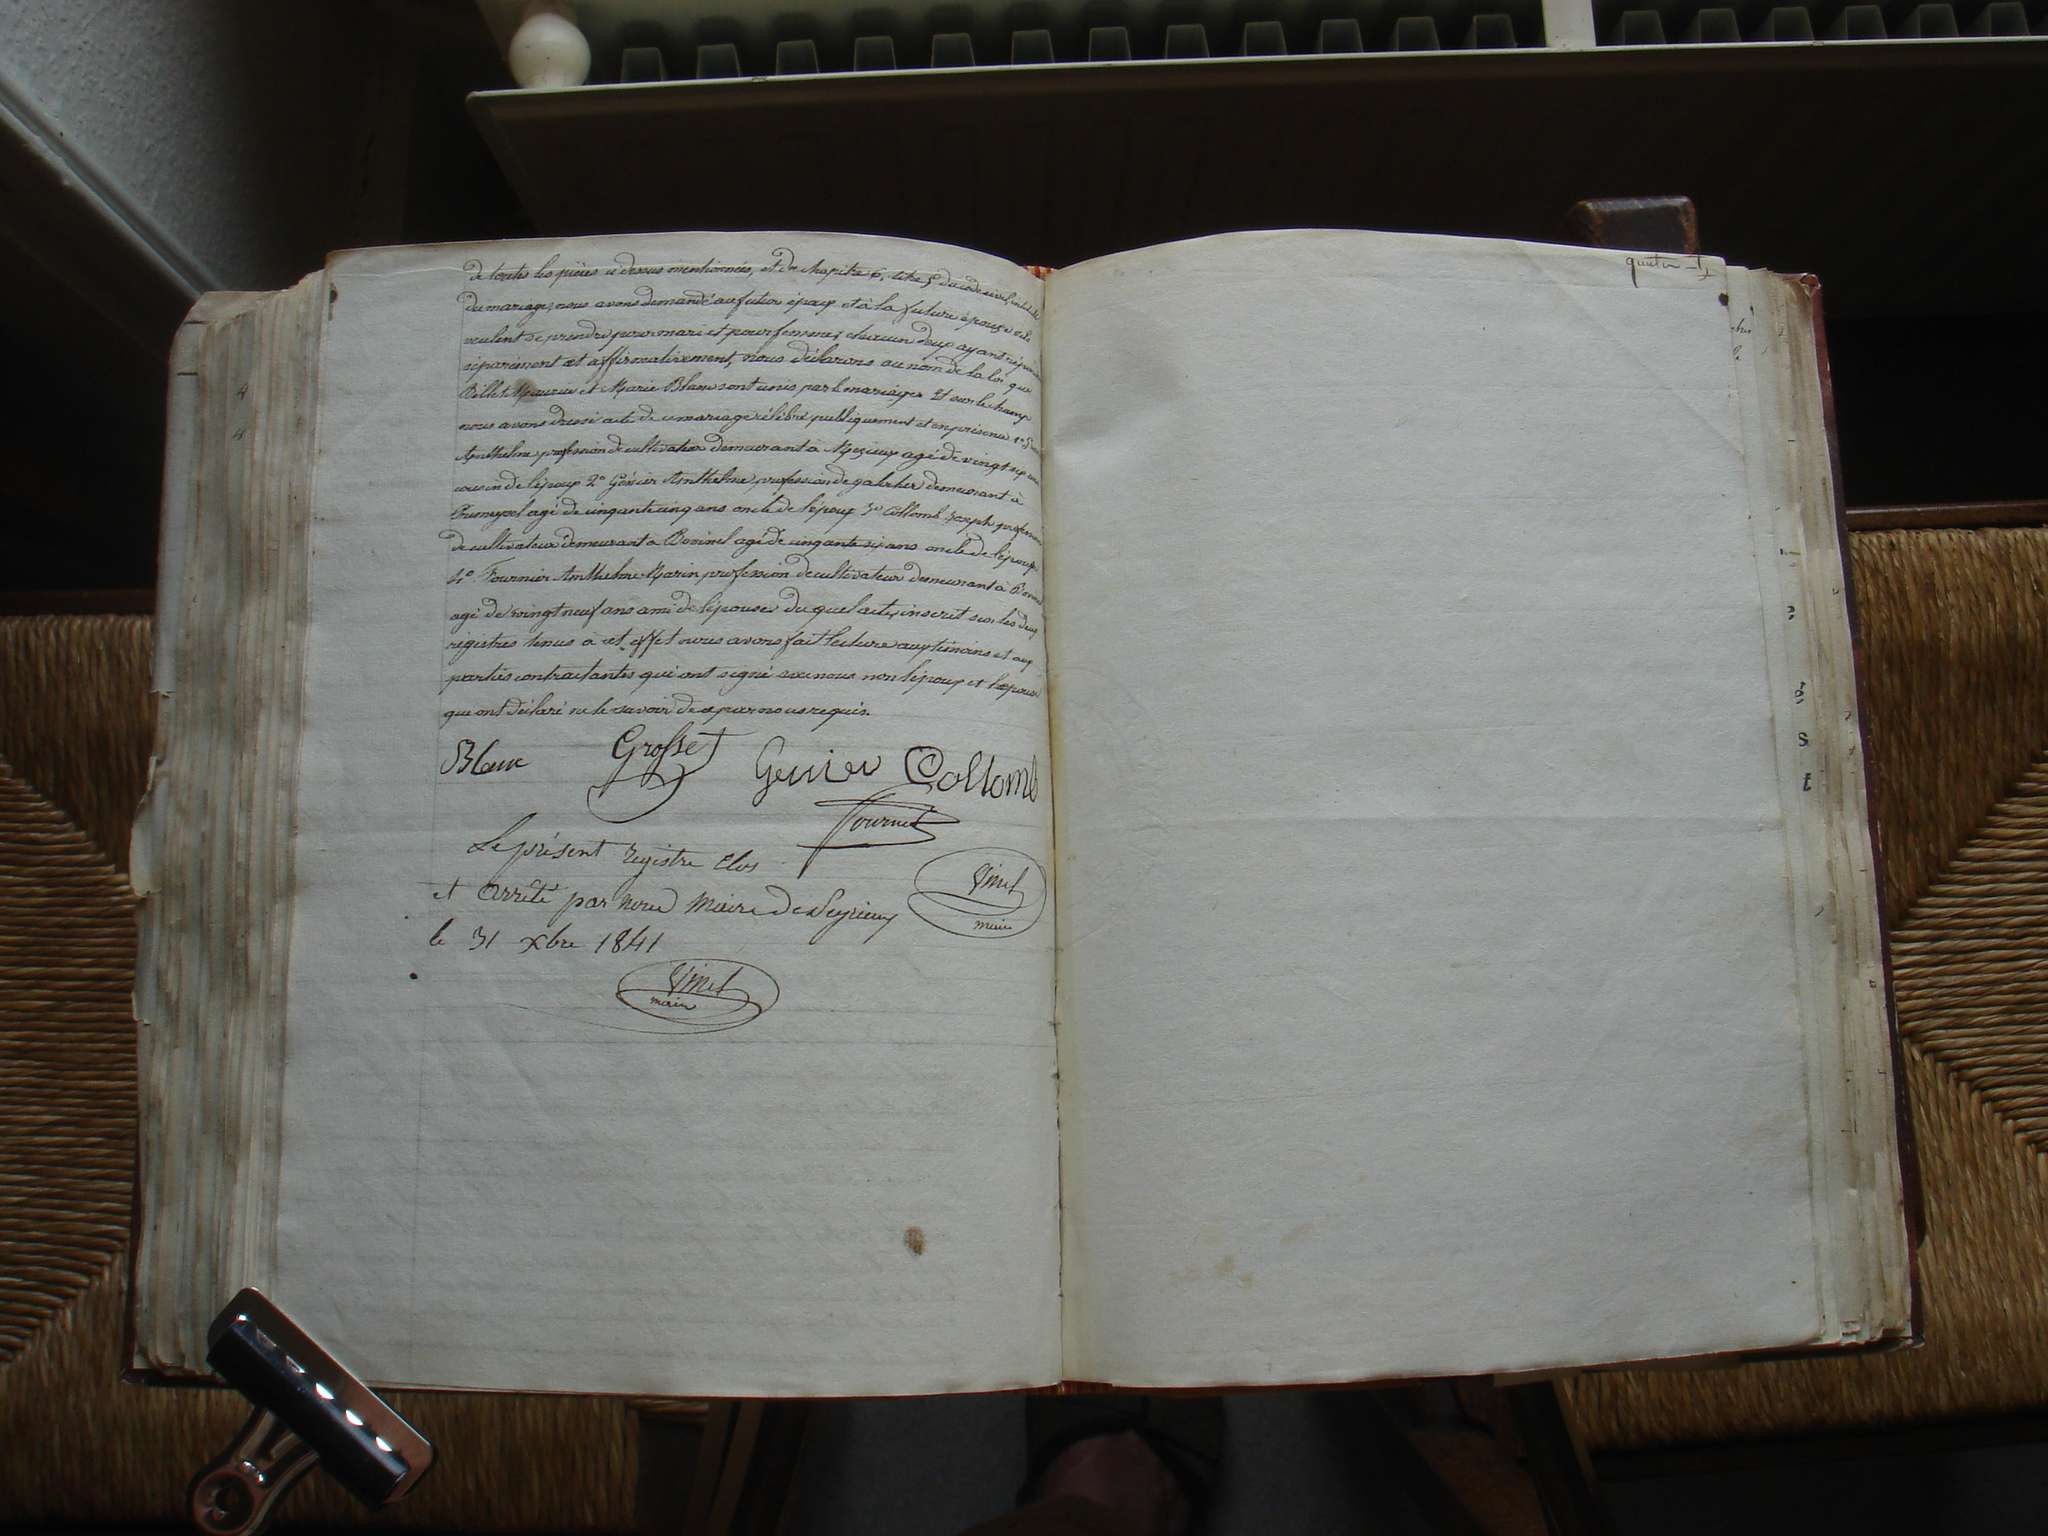 de toutes les pièces ci dessus mentionnées, et du chapitre 6, titre 5 du code civil, intitulé
du mariage, nous avons demandé au futur époux et à la future épouse s'ils
veulent se prendre pour mari et pour femme, chacun deux ayant répondu
séparément et affirmativement, nous déclarons au nom de la loi que
Billet Maurice et Marie Blanc sont unis par le mariage. Et sur le champ
nous avons dressé acte de ce mariage célébré publiquement et en présence 1o
Anthelme profession de cultivateur demeurant à agé de vingt
cousin de l'époux 2o Génier Anthelme profession de galocher demeurant à
Prumeysel agé de cinquante cinq ans oncle de l'époux 3o Collomb Joseph profession
de cultivateur demeurant à agé de cinquante six ans oncle de l'époux
4o Fournier Anthelme Marin profession de cultivateur demeurant à
agé de vingt neuf ans ami de l'épouse; du quel acte, inscrit sur les deux
régistres tenus à cet effet nous avons fait lecture aux témoins et aux
parties contractantes qui ont signé avec nous non l'époux et l'épouse
qui ont déclaré ne le savoir de ce par nous requis.
Blanc Grosset Genier Collomb
Fournier
Le présent registre clos
et arrêté par nous Maire de Peyrieux
le 31 xbre 1841
Vinet
maire
Vinet
maire